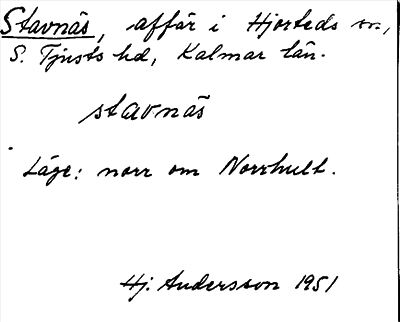 Stavnäs, affär i Hjorteds sn.,
S. Tjusts hd, Kalmar län.
stavnäs
Läge: norr om Norrhult.
Hj. Andersson 1951